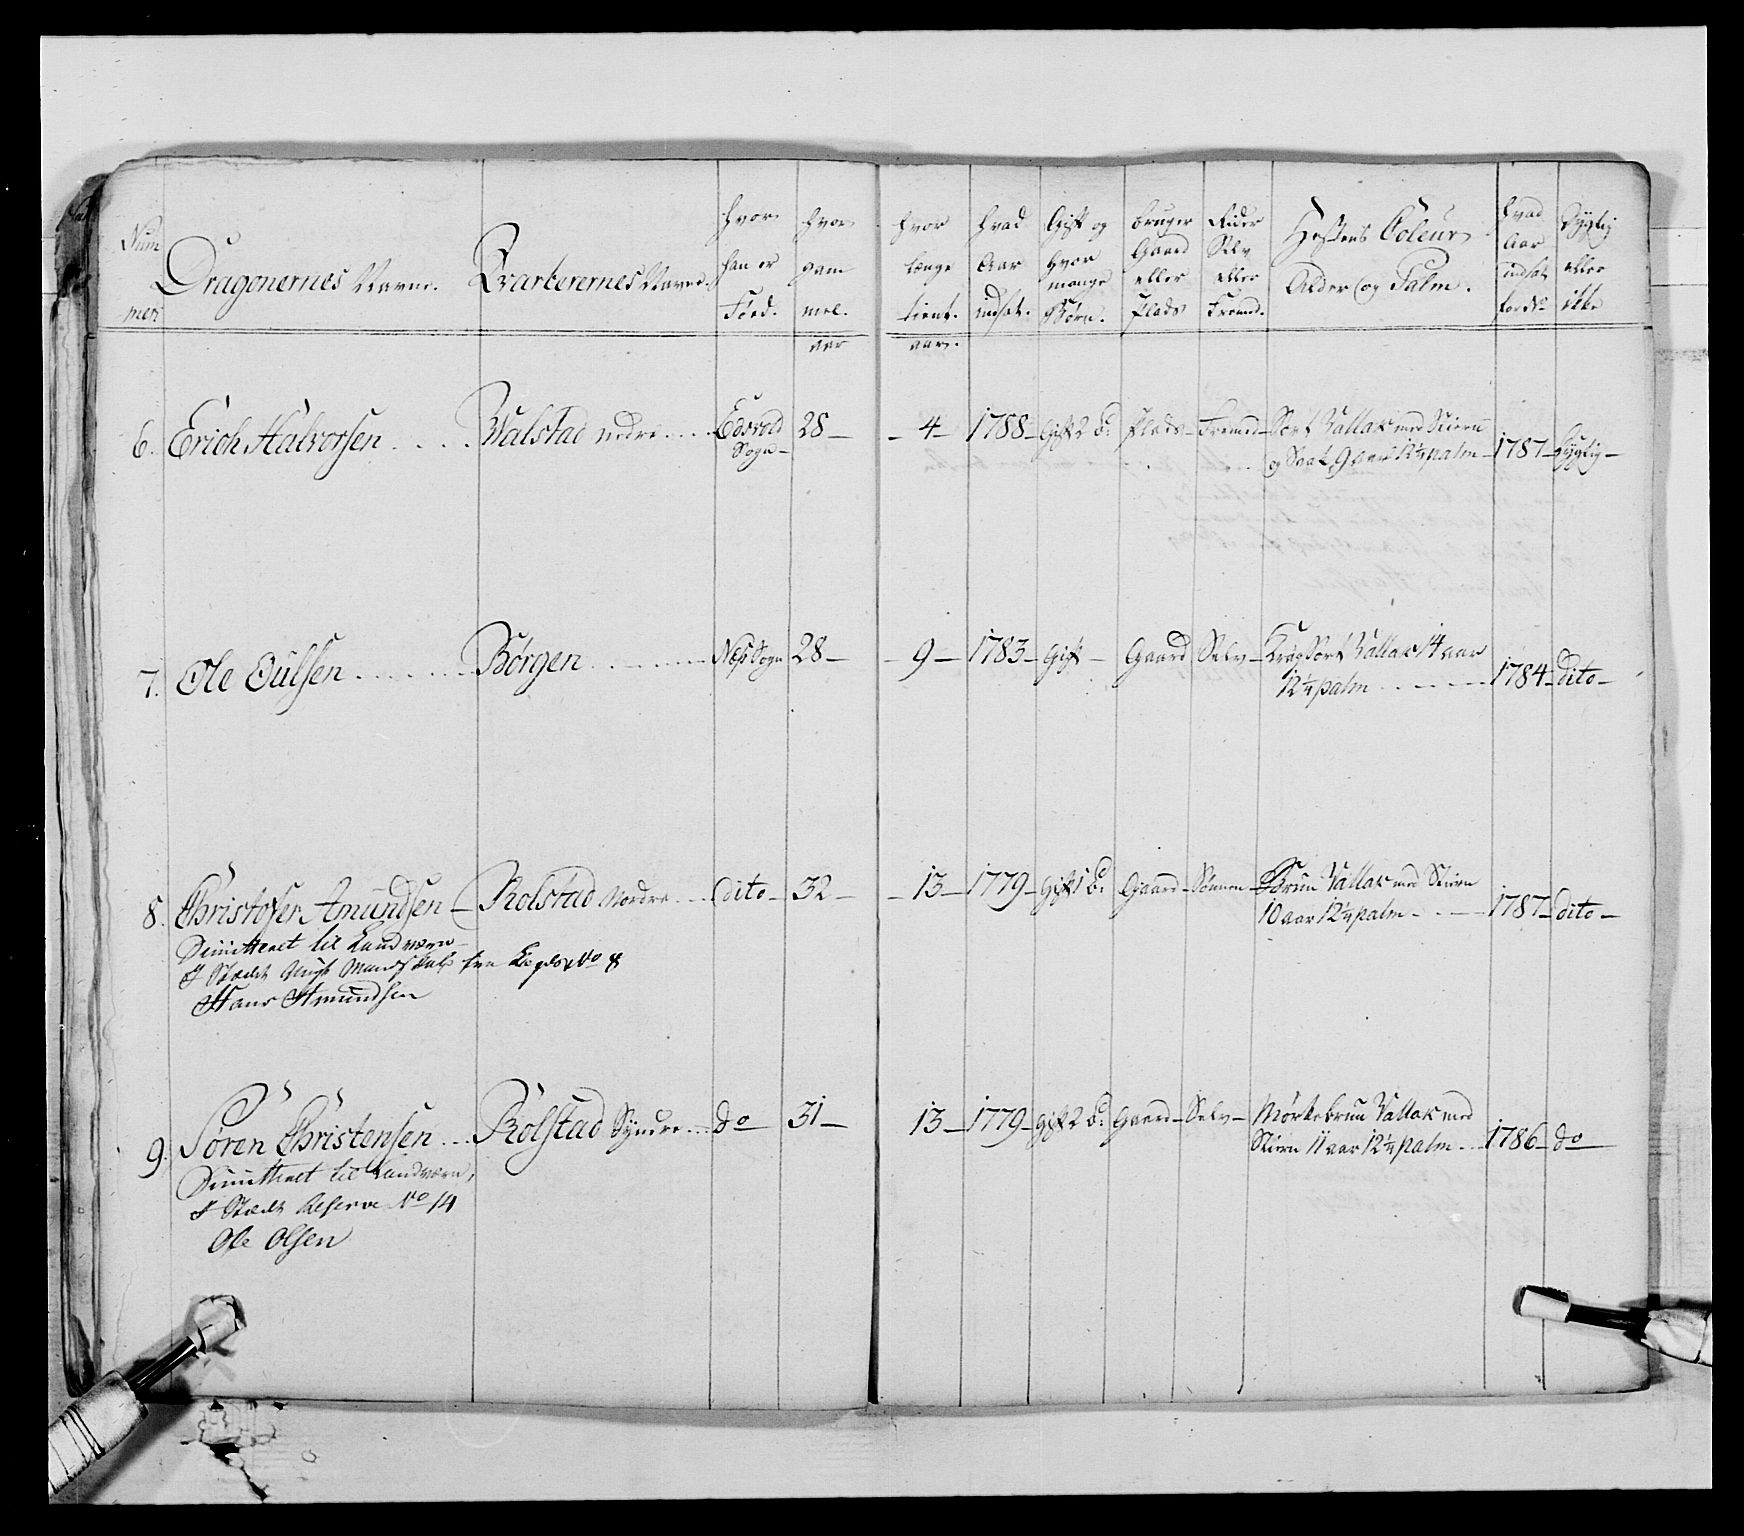 Num
mer
Dragonernes Navne.
Qvarterernes Navne.
hvor
han er
Fød.
hvor
gam
mel.
aar
hvor
længe
tient.
aar.
hvad
Aar
indsat.
Gift og
hvor
mange
Børn.
bruger
Gaard
eller
Plads
Rider
Selv
eller
Fremd.
Hestens Coleur
Alder og Palm.
hvad
Aar
indsat
Dygtig
eller
ikke
6. Erich Halvorsen Walstad nedre Edsvold 28 4 1788 Gift 2 b: Plads Fremed Sort Vallak med Stiern
Sogn og 9 aar 12½ palm 1787 Dygtig
7. Ole Oulsen Børgen Næs Sogn 28 9 1783 Gift Gaard Selv Sort Vallak 14 aar
12¼ palm 1784 dito
8. Christofer Amundsen Rolstad Nordre dito 32 13 1779 gift 1 b: Gaard Brun Vallak med Stiern
10 aar 12¼ palm 1787 dito
Dimitteret til Landværn
I Stædet Mandskab fra Lægds No 8
Hans Amundsen
9. Søren Christensen Rolstad Syndre do 31 13 1779 gift 2 b: Gaard Selv Mørkebrun Vallak med
Stiern 11 aar 12½ palm 1786 do
Dimitteret til Landværn,
I Stædet Reserve No 14
Ole Olsen